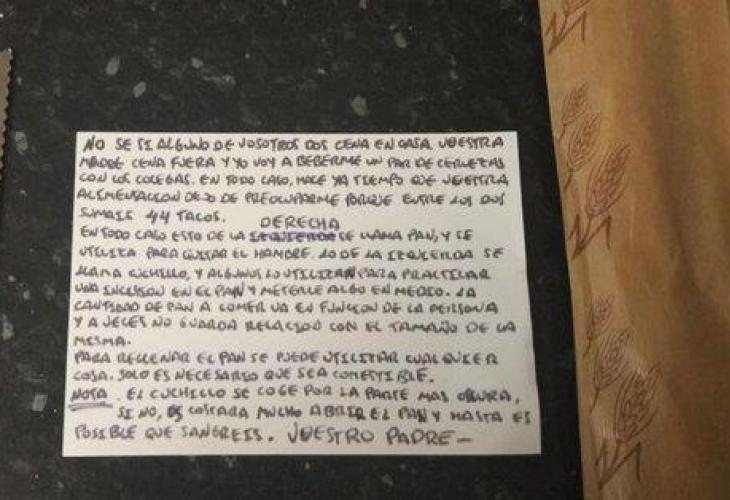 NO SE SI ALGUNO DE VOSOTROS DOS CENA EN CASA. VUESTRA
MADRE CENA FUERA Y YO VOY A BEBERME UN PAR DE CERVEZAS
CON LOS COLEGAS. EN TODO CASO, HACE YA TIEMPO QUE VUESTRA
ALIMENTACION DEJO DE PREOCUPARME PORQUE ENTRE LOS DOS
SUMAIS 44 TACOS.
DERECHA
EN TODO CASO ESTO DE LA IZQUIERDA SE LLAMA PAN, Y SE
UTILIZA PARA QUITAR EL HAMBRE. LO DE LA IZQUIERDA SE
LLAMA CUCHILLO, Y ALGUNOS LO UTILIZAN PARA PRACTICAR
UNA INCISION EN EL PAN Y METERLE ALGO EN MEDIO. LA
CANTIDAD DE PAN A COMER VA EN FUNCION DE LA PERSONA
Y A VECES NO GUARDA RELACION CON EL TAMAÑO DE LA
MISMA.
PARA RELLENAR EL PAN SE PUEDE UTILIZAR CUALQUIER
COSA. SOLO ES NECESARIO QUE SEA COMESTIBLE.
NOTA. EL CUCHILLO SE COGE POR LA PARTE MAS OSCURA,
SI NO, OS COSTARA MUCHO ABRIR EL PAN Y HASTA ES
POSIBLE QUE SANGREIS. VUESTRO PADRE —